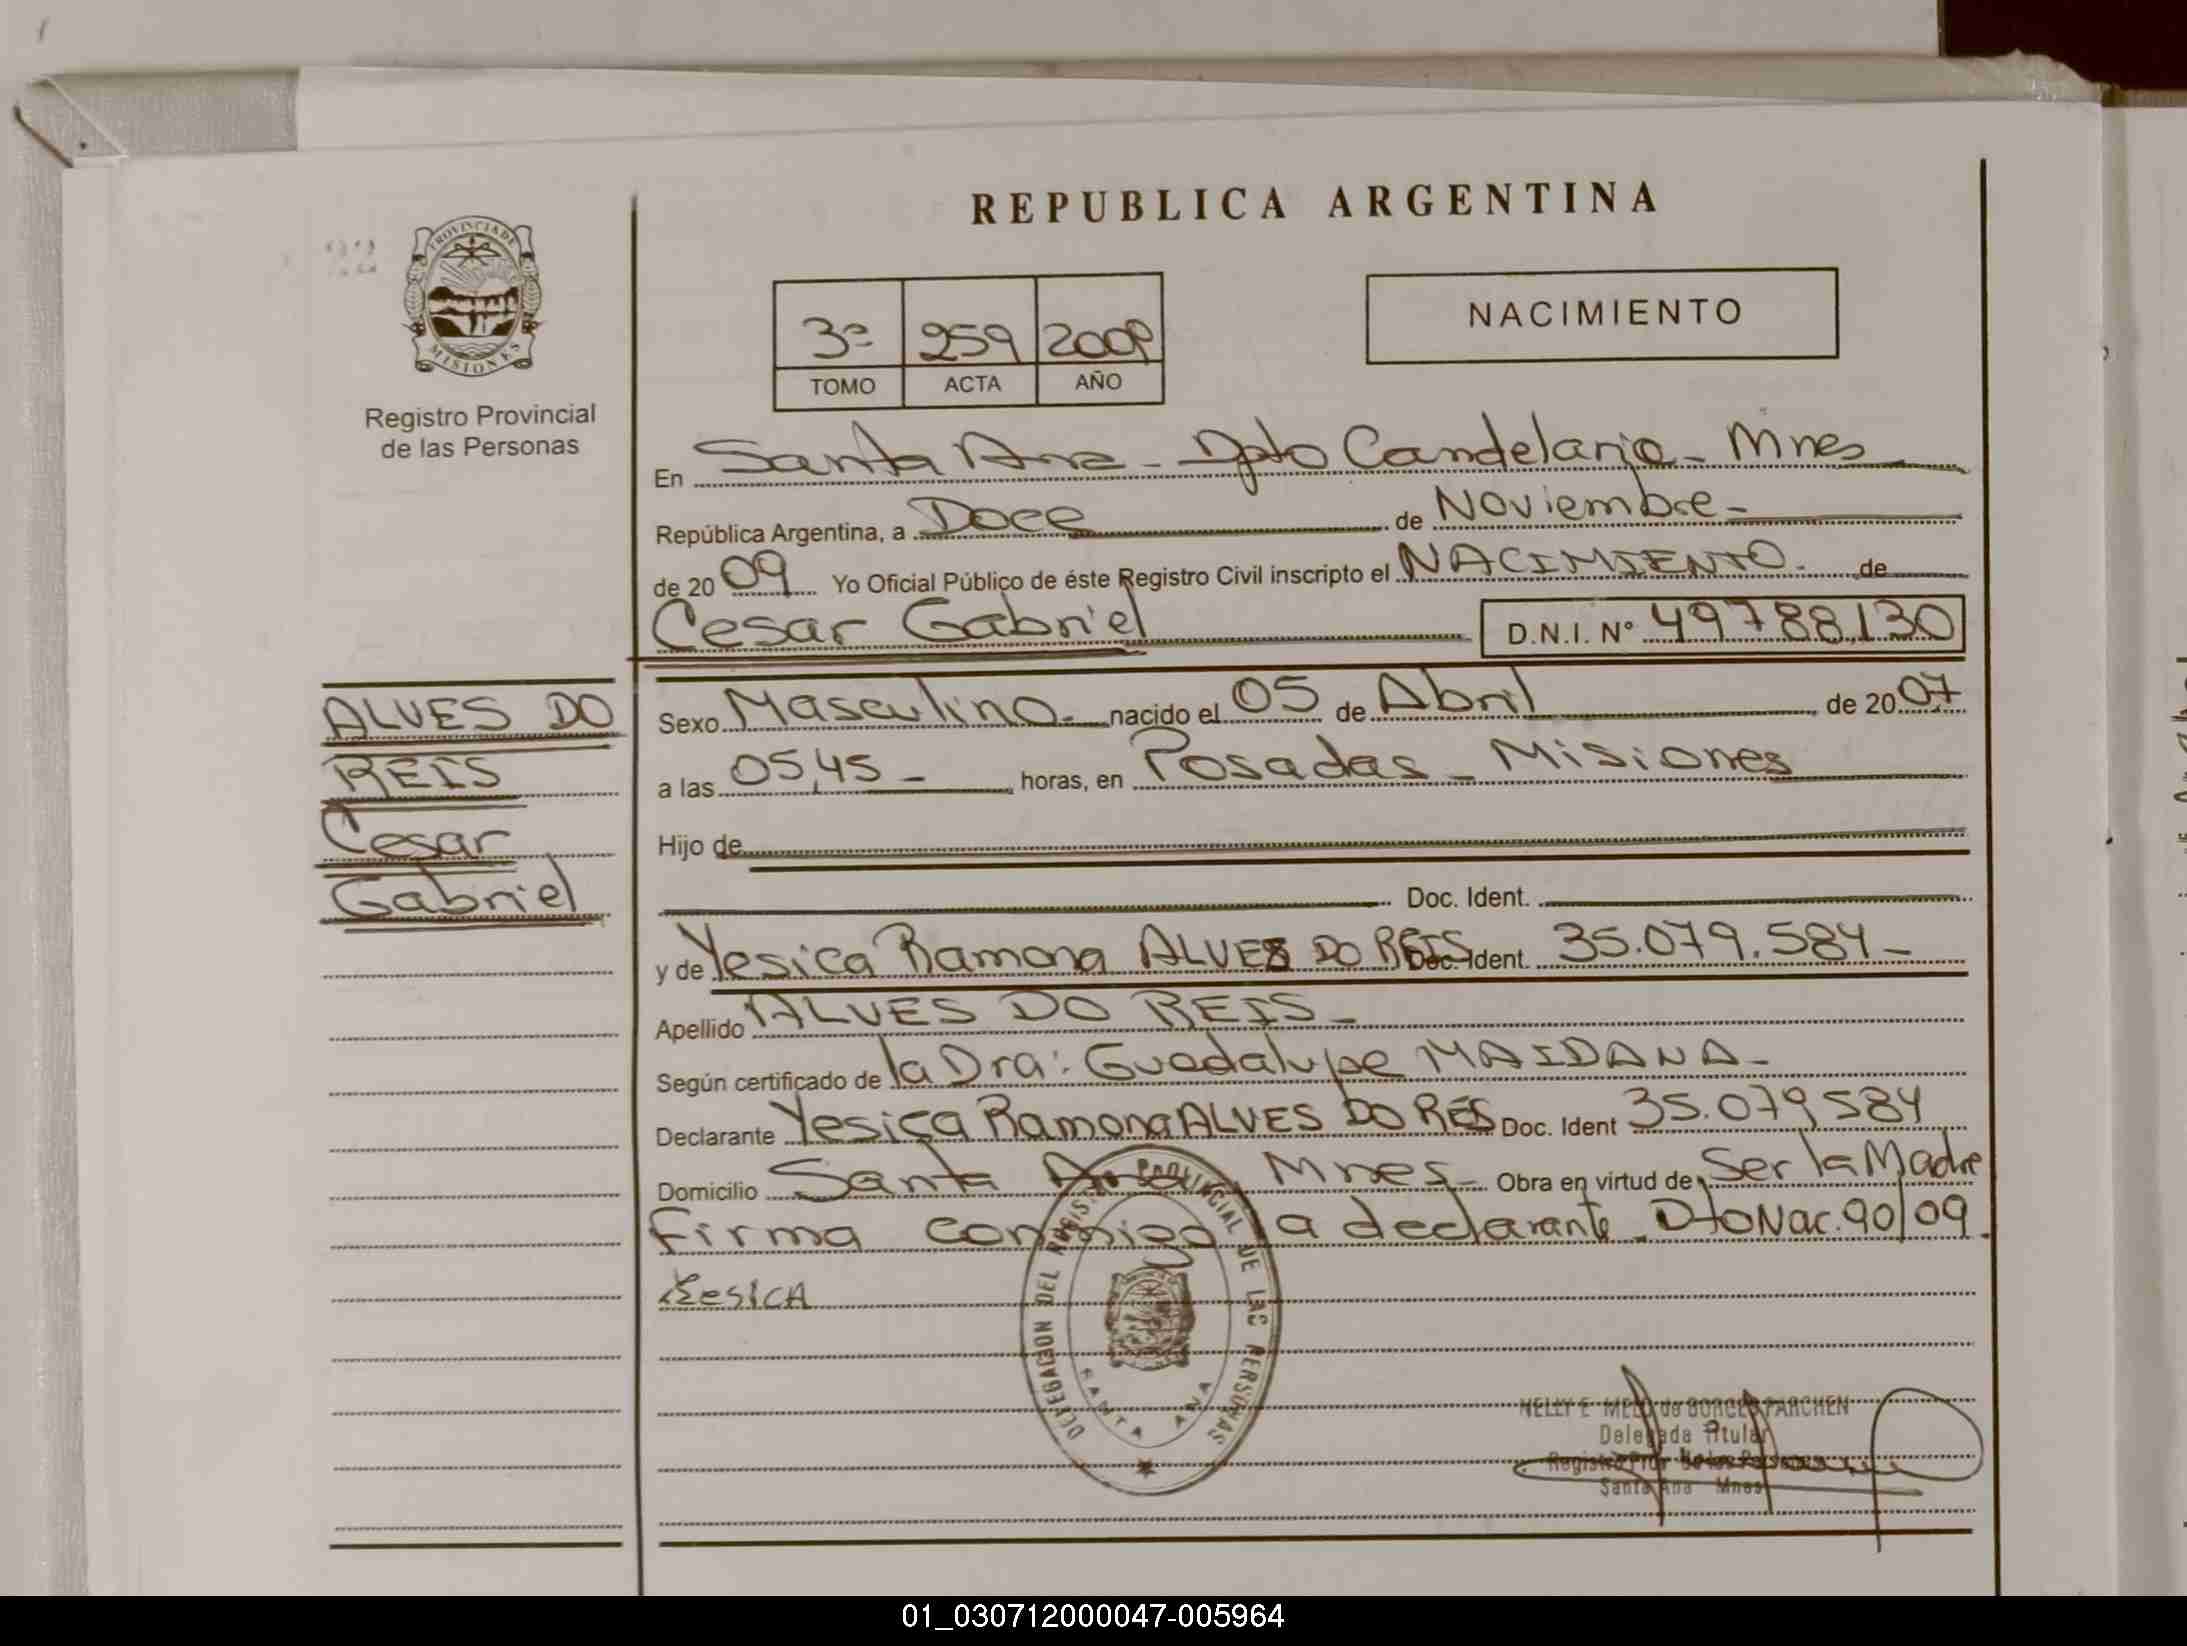 REPUBLICA ARGENTINA
22
PROVINCIA DE
MISIONES
Registro Provincial
de las Personas
3ª 259 2009
TOMO ACTA AÑO
NACIMIENTO
En Santa Ana - Dpto Candelaria - Mnes
República Argentina, a Doce de Noviembre -
de 2009 Yo Oficial Público de éste Registro Civil inscripto el NACIMIENTO. de
Cesar Gabriel D.N.I. Nº 49788,130
ALVES DO
REIS
Cesar
Gabriel
Sexo Masculino - nacido el 05 de Abril de 2007
a las 05,45 - horas, en Posadas - Misiones
Hijo de
Doc. Ident.
y de Yesica Ramona ALVES DO REIS Doc. Ident. 35.079.584 -
Apellido ALVES DO REIS -
Según certificado de la Dra: Guadalupe MAIDANA -
Declarante Yesica Ramona ALVES DO REIS Doc. Ident 35.079584
Domicilio Santa Ana Mnes - Obra en virtud de Ser la Madre
Firma conmigo la declarante - Dto Nac. 90/09.
Yesica
DELEGACION DEL REGISTRO PROVINCIAL DE LAS PERSONAS
SANTA ANA
NELLY E MELO de BORGES PARCHEN
Delegada Titular
Registro Prov de las Personas
Santa Ana Mnes
01_030712000047-005964